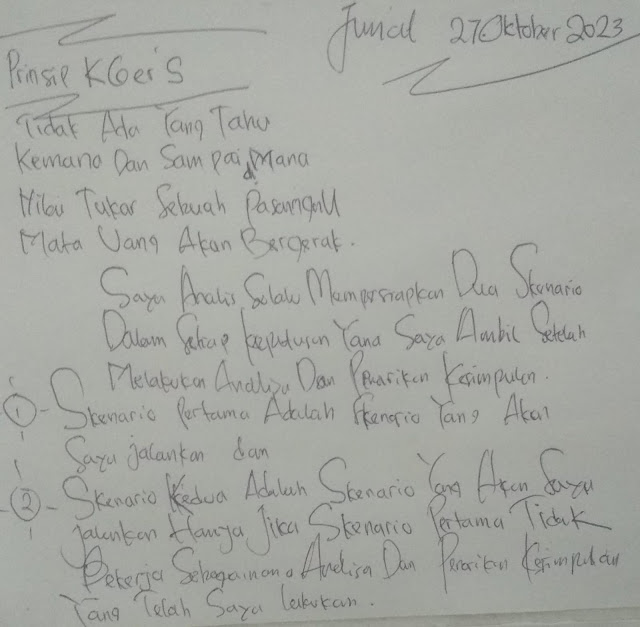 Jumat 27 Oktober 2023
Prinsip KGer'S
Tidak Ada Yang Tahu
Kemana Dan Sampai diMana
Nilai Tukar Sebuah Pasangan
Mata Uang Akan Bergerak.
Saya Analis Selalu Mempersiapkan Dua Skenario
Dalam Setiap Keputusan Yang Saya Ambil Setelah
Melakukan Analisa Dan Penarikan Kesimpulan.
1 - Skenario Pertama Adalah Skenario Yang Akan
Saya jalankan dan
- 2 - Skenario Kedua Adalah Skenario Yang Akan Saya
jalankan Hanya Jika Skenario Pertama Tidak
Bekerja Sebagaimana Analisa Dan Penarikan Kesimpulan
Yang Telah Saya Lakukan.